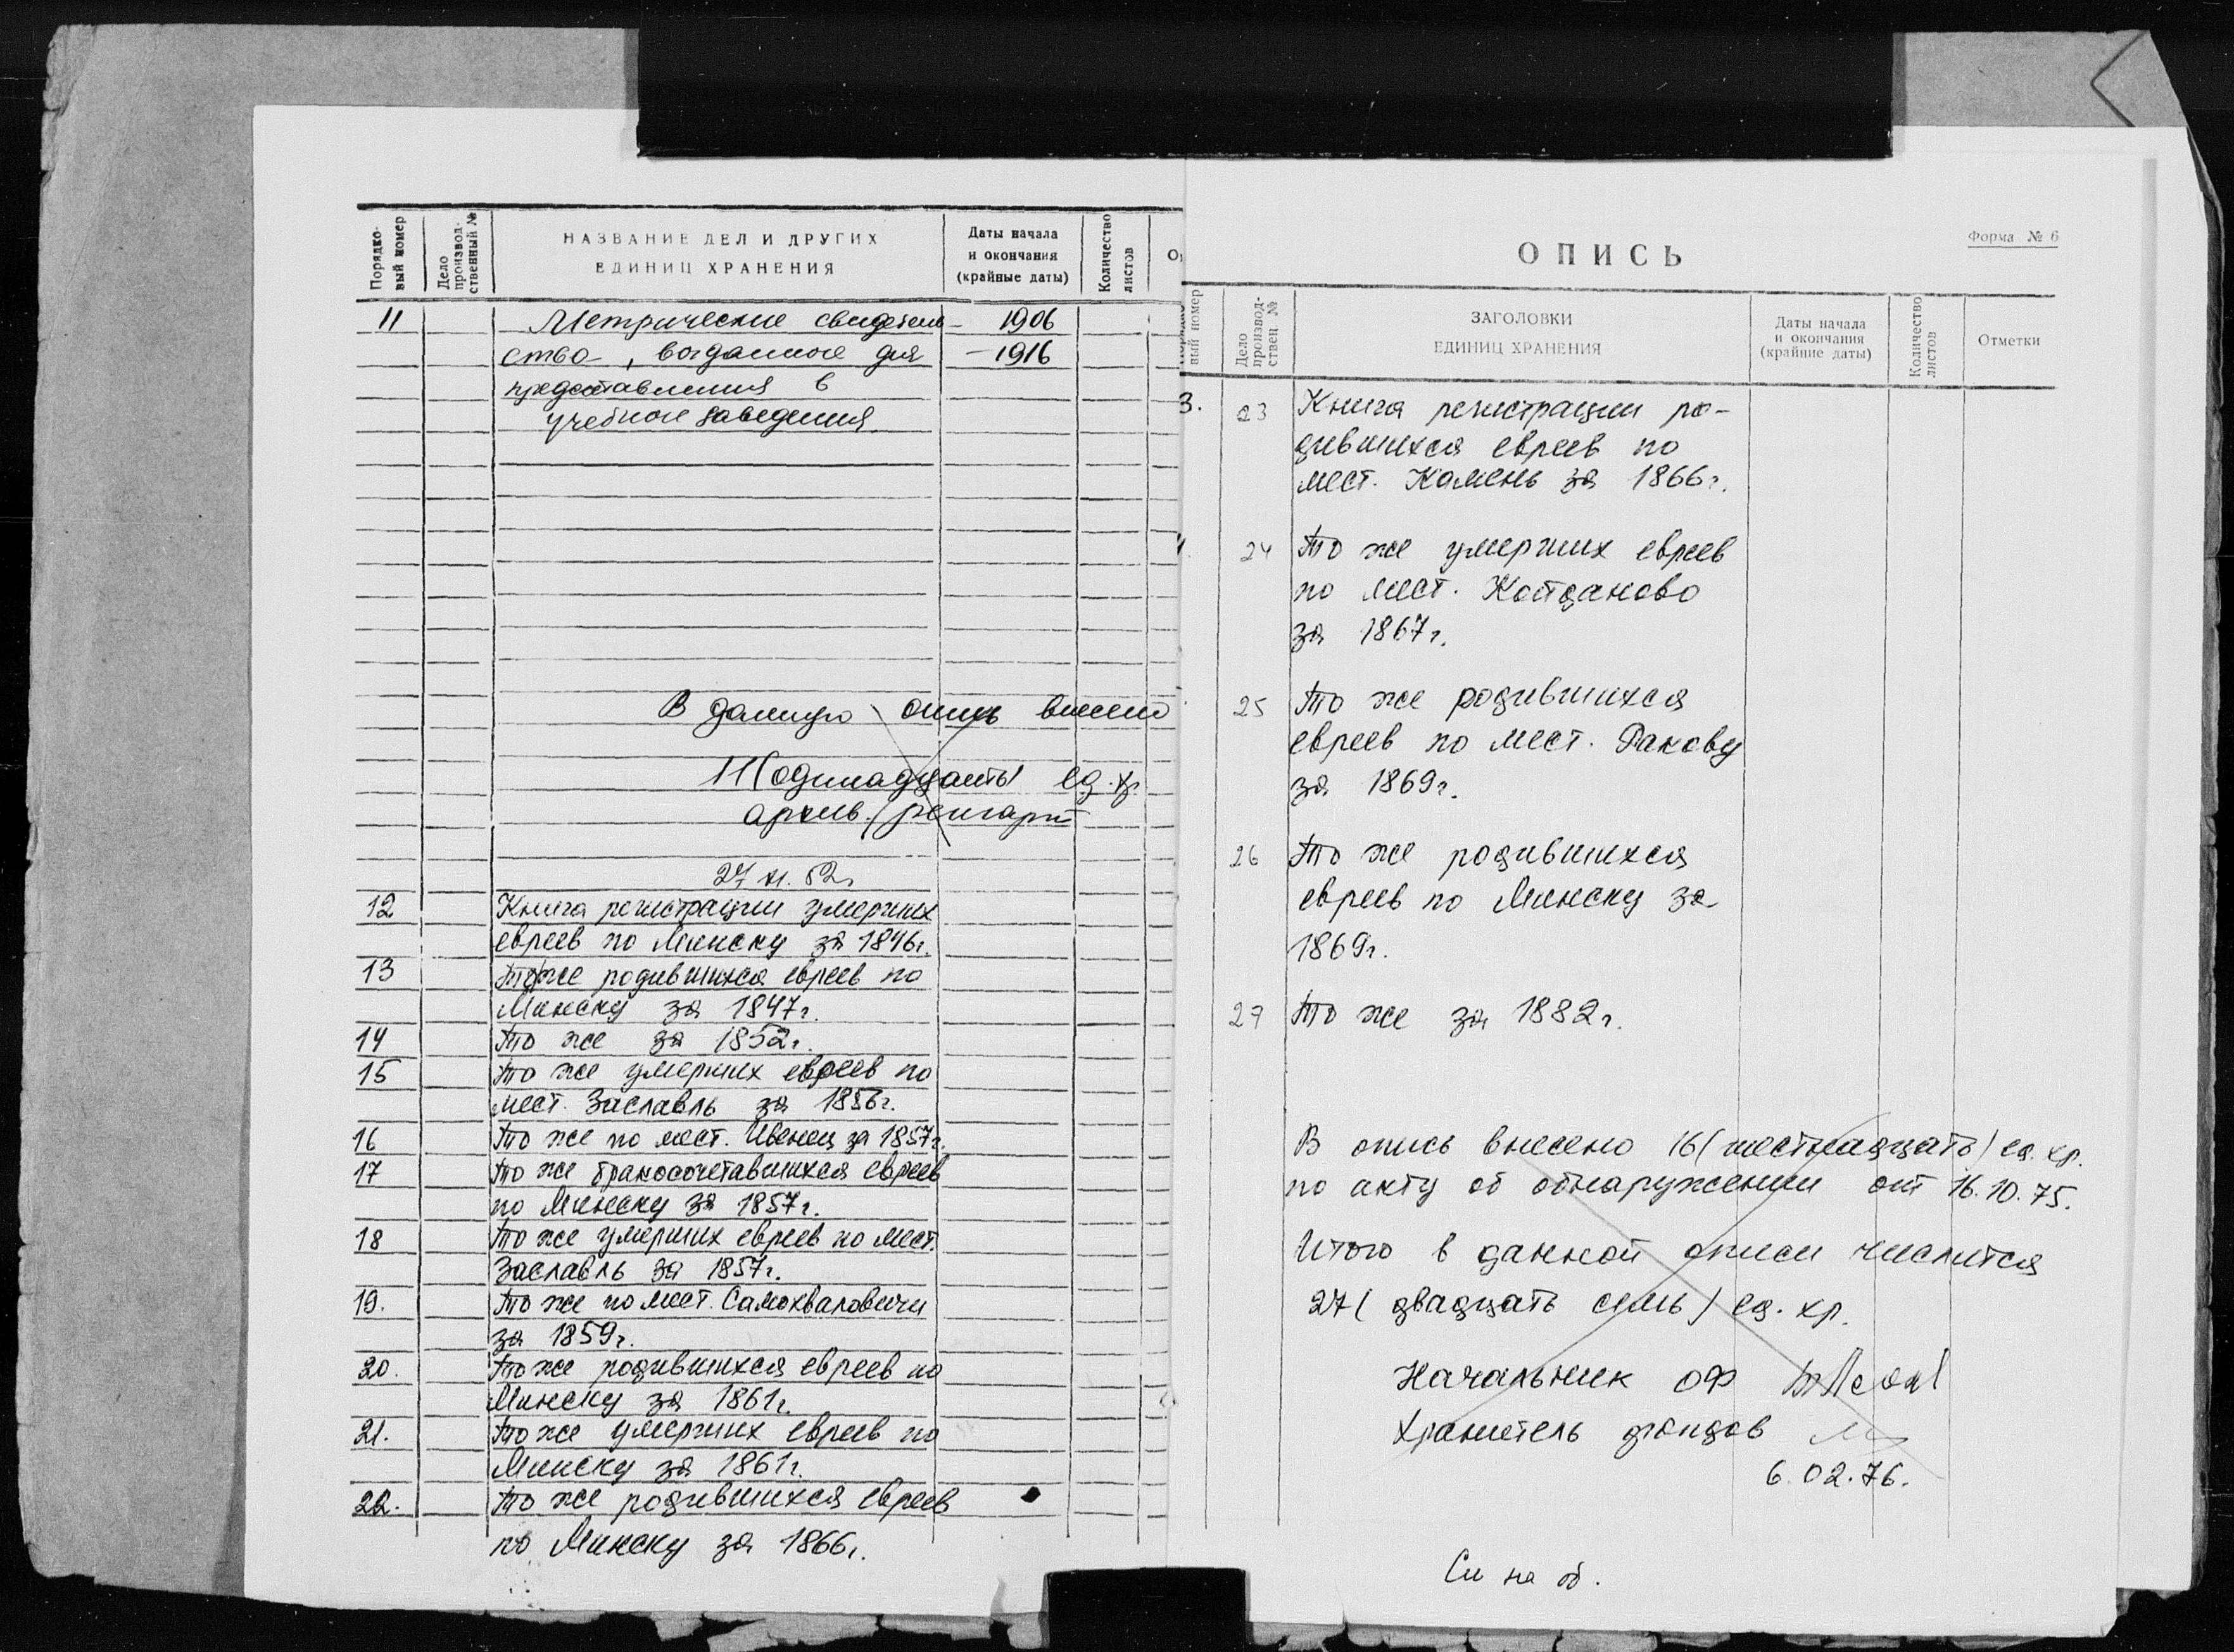 Порядко-
вый номер
Дело
производ-
ственный №
НАЗВАНИЕ ДЕЛ И ДРУГИХ
ЕДИНИЦ ХРАНЕНИЯ
Даты начала
и окончания
(крайные даты)
Количество
листов
11 Метрические свидетель- 1906
ство, выданное для -1916
предоставления в
учебное заведения
В данную опись внесено
11 (одинадцать) ед. хр.
архив.
27 XI. 52.
12 Книга регистрации умерших
евреев по Минску за 1846г.
13 То же родившихся евреев по
Минску за 1847г.
14 То же за 1852г.
15 То же умерших евреев по
мест. Заславль за 1856г.
16 То же по мест. Ивенец за 1857г.
17 То же бракосочетавшихся евреев
по Минску за 1857г.
18 То же умерших евреев по мест.
Заславль за 1857г.
19. То же по мест. Самохваловичи
за 1859г.
20. То же родившихся евреев по
Минску за 1861г.
21. То же умерших евреев по
Минску за 1861г.
22. То же родившихся евреев
по Минску за 1866г.
Форма № 6
ОПИСЬ
вый номер
Дело
производ-
ствен №
ЗАГОЛОВКИ
ЕДИНИЦ ХРАНЕНИЯ
Даты начала
и окончания
(крайние даты)
Количество
листов
Отметки
3. 23 Книга регистрации ро-
дившихся евреев по
мест. Камень за 1866г.
24 То же умерших евреев
по мест. Койданово
за 1867г.
25 То же родившихся
евреев по мест. Ракову
за 1869г.
26 То же родившихся
евреев по Минску за
1869г.
27 То же за 1882г.
В опись внесено 16 (шестнадцать) ед. хр.
по акту об обнаружении от 16.10.75.
Итого в данной описи числится
27 (двадцать семь) ед. хр.
Начальник ОФ
Хранитель фондов
6.02.76.
См на об.